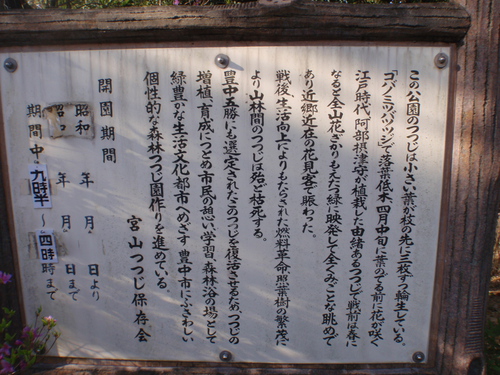 この公園のつつじは小さい葉が枝の先に三枚ずつ輪生している。
「コバノミツバツツジ」で落葉低木四月中旬に葉のでる前に花が咲く
江戸時代、阿部摂津守が植栽した由緒あるつつじで戦前は春に
なると全山花ざかりもえたつ緑に映発して全くみごとな眺めで
あり近郷近在の花見客で賑わった。
戦後、生活向上によりもたらされた燃料革命、照葉樹の繁茂に
より山林間のつつじは殆ど枯死する。
豊中五勝にも選定されたこのつつじを復活させるためつつじの
増植、育成につとめ市民の憩い、学習、森林浴の場として
緑豊かな生活文化都市へめざす豊中市にふさわしい
個性的な森林つつじ園作りを進めている。
宮山つつじ保存会
開園期間
昭和 年 月 日より
昭和 年 月 日まで
期間中 九時半～四時まで